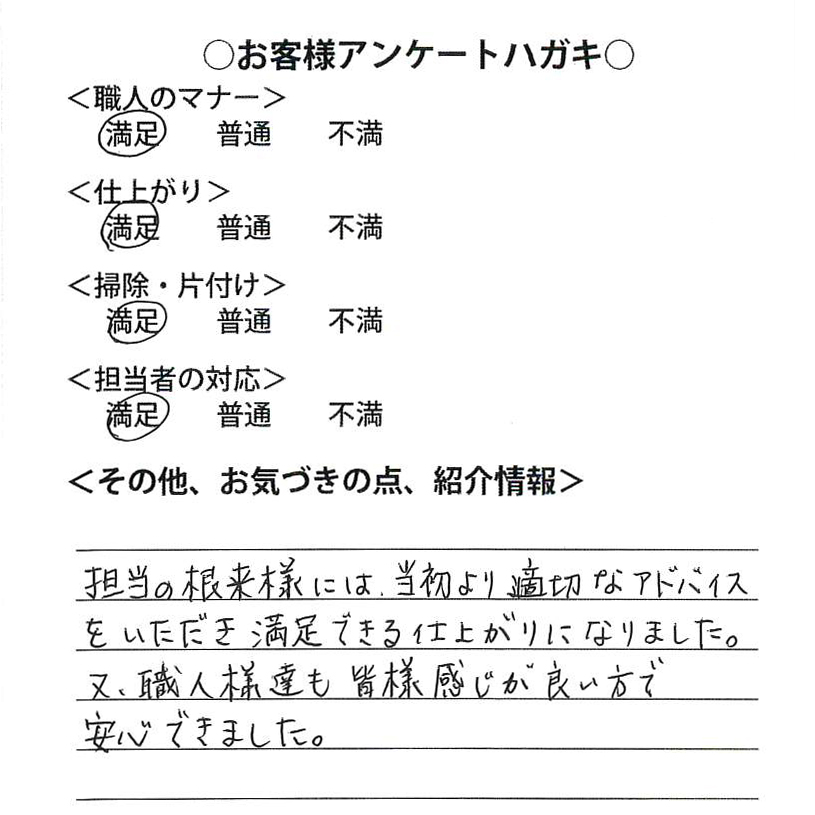 ○お客様アンケートハガキ○
＜職人のマナー＞
満足 普通 不満
＜仕上がり＞
満足 普通 不満
＜掃除・片付け＞
満足 普通 不満
＜担当者の対応＞
満足 普通 不満
＜その他、お気づきの点、紹介情報＞
担当の根来様には、当初より適切なアドバイス
をいただき満足できる仕上がりになりました。
又、職人様達も皆様感じが良い方で
安心できました。